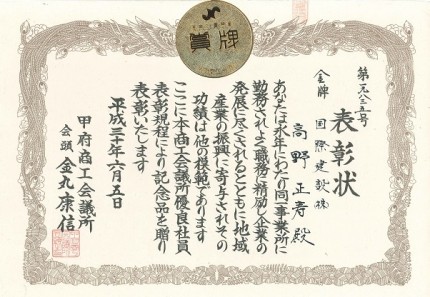 賞牌
表彰状
金牌
国際建設(株)
高野正寿殿
あなたは永年にわたり同一事業所に
勤務されよく職務に精励し企業の
発展に尽されるとともに地域
産業の振興に寄与されその
功績は他の模範であります
ここに本商工会議所優良社員
表彰規程により記念品を贈り
表彰いたします
平成三十年六月五日
甲府商工会議所
会頭 金丸康信